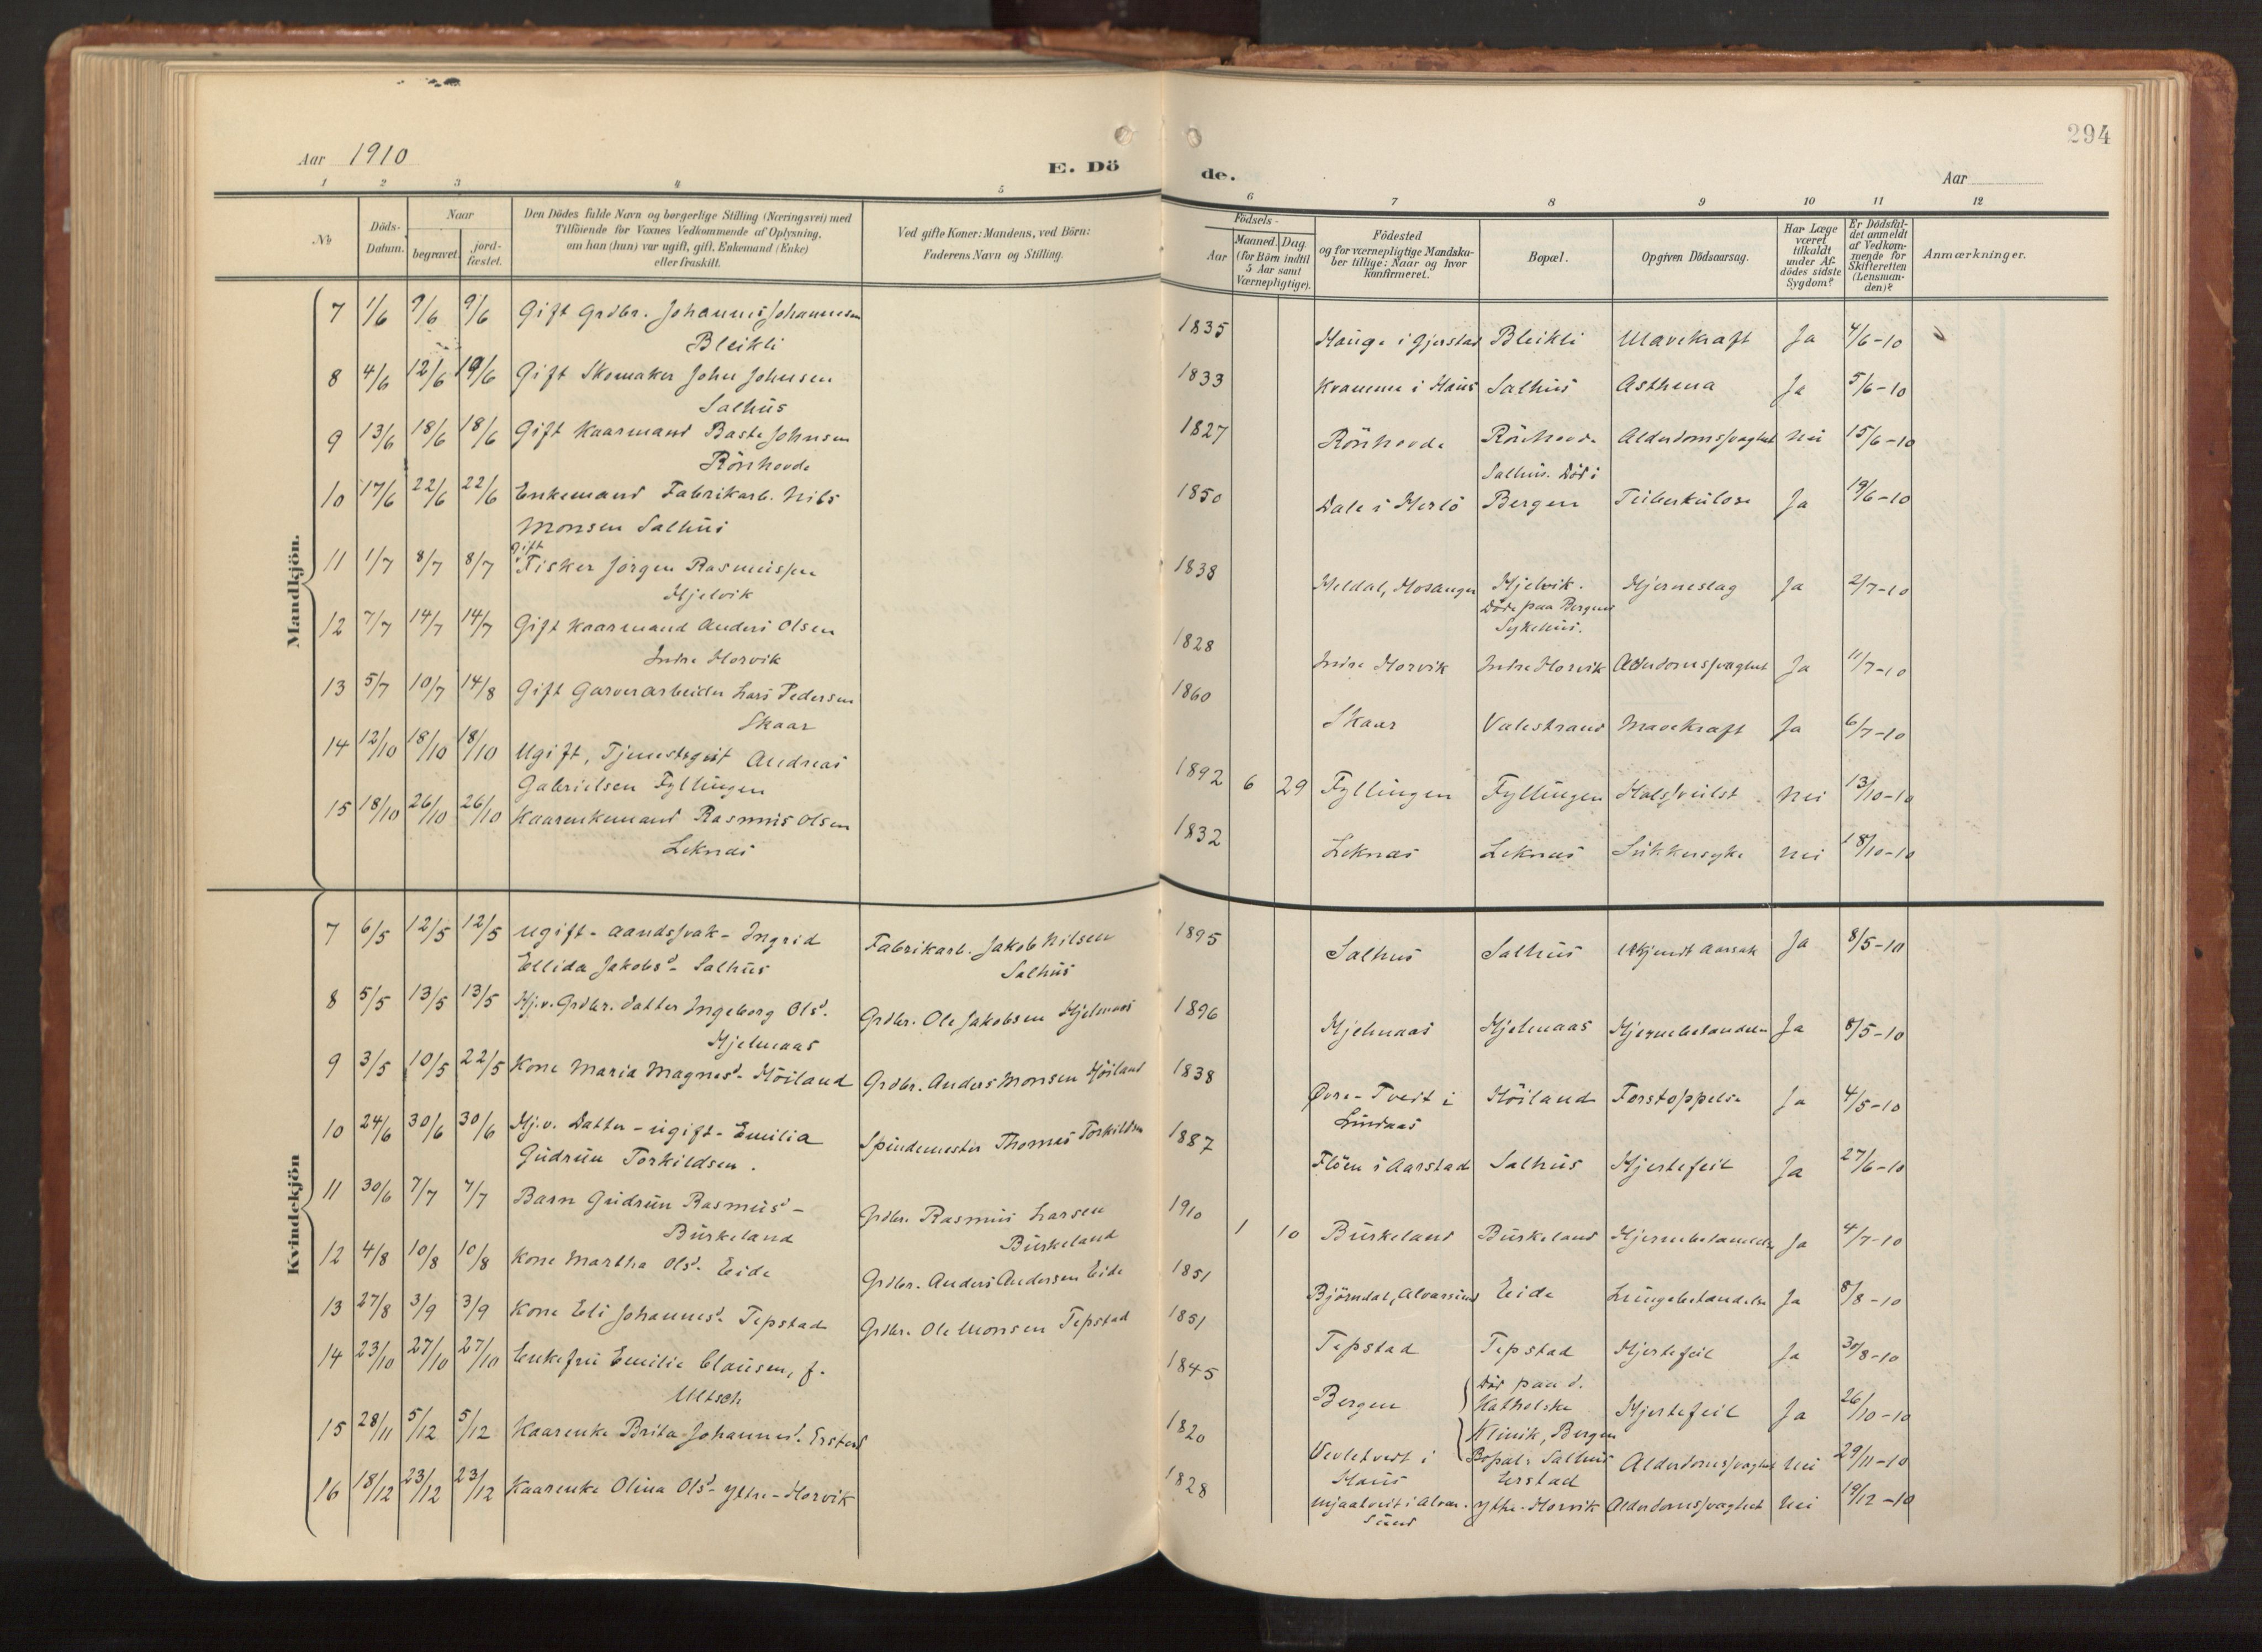 294
Aar 1910
E. Dö
de.
Aar
1 2 3 4 5 6 7 8 9 10 11 12
No
Döds-Datum.
Naar
begravet. jord-fæstet.
Den Dödes fulde Navn og borgerlige Stilling (Næringsvei) med
Tilföiende for Voxnes Vedkommende af Oplysning,
om han (hun) var ugift, gift, Enkemand (Enke)
eller fraskilt.
Ved gifte Koner: Mandens, ved Börn:
Faderens Navn og Stilling.
Födsels-
Aar
Maaned. Dag.
(for Börn indtil
5 Aar samt
Værnepligtige).
Födested
og for værnepligtige Mandska-
ber tillige: Naar og hvor
konfirmeret.
Bopæl.
Opgiven Dödsaarsag.
Har Læge
været
tilkaldt
under Af-
dödes sidste
Sygdom?
Er Dödsfal-
det anmeldt
af Vedkom-
mende for
Skifteretten
(Lensman-
den)?
Anmærkninger.
Mandkjön.
7 1/6 9/6 9/6 Gift Grdbr. Johannes Johannesen 1835 Hauge i Gjerstad Bleikli Mavekraft Ja 4/6-10
Bleikli
8 4/6 12/6 19/6 Gift Skomaker John Johnsen 1833 Kramme i Haus Salhus Asthma Ja 5/6-10
Salhus
9 13/6 18/6 18/6 Gift Kaarmand Baste Johnsen 1827 Rönhovde Rönhovde Alderdomssvaghet Nei 15/6-10
Rönhovde
Salhus. Död i
10 17/6 22/6 22/6 Enkemand Fabrikarb. Nils 1850 Dale i Herlö Bergen Tuberkulose Ja 19/6-10
Monsen Salhus
gift
11 1/7 8/7 8/7 Fisker Jörgen Rasmussen 1838 Meldal, Hosanger Hjelvik. Hjerneslag Ja 2/7-10
Hjelvik Döde paa Bergens
Sykehus.
12 7/7 14/7 14/7 Gift Kaarmand Anders Olsen 1828 Indre Horvik Indre Horvik Alderdomssvaghet Ja 11/7-10
Indre Horvik
13 5/7 10/7 14/8 Gift Garverarbeider Lars Pedersen 1860 Skaar Valestrand Mavekraft Ja 6/7-10
Skaar
14 12/10 18/10 18/10 Ugift, Tjenestegut Andreas 1892 6 29 Fyllingen Fyllingen Halssvulst Nei 13/10-10
Gabrielsen Fyllingen
15 18/10 26/10 26/10 Kaarenkemand Rasmus Olsen 1832 Leknes Leknes Sukkersyke Nei 18/10-10
Leknes
Kvindekjön
7 6/5 12/5 12/5 Ugift - aandssvak - Ingrid Fabrikarb. Jakob Nilsen 1895 Salhus Salhus Ukjendt Aarsak Ja 8/5-10
Ellida Jakobsd. Salhus Salhus
8 5/5 13/5 13/5 Hj.v. Grdbr. datter Ingeborg Olsd. Grdbr. Ole Jakobsen Hjelmaas 1896 Hjelmaas Hjelmaas Hjernebetændelse Ja 8/5-10
Hjelmaas
9 3/5 10/5 22/5 Kone Maria Magnesd. Höiland Grdbr. Anders Monsen Höiland 1838 Övre-Tveit i Höiland Forstoppelse Ja 4/5-10
Lindaas
10 24/6 30/6 30/6 Hj.v. Datter - ugift - Emilia Spindemester Thomas Torkildsen 1887 Flöen i Aarstad Salhus Hjertefeil Ja 27/6-10
Gudrun Torkildsen.
11 30/6 7/7 7/7 Barn Gudrun Rasmusd - Grdbr. Rasmus Larsen 1910 1 10 Burkeland Burkeland Hjernebetændelse Ja 4/7-10
Burkeland Burkeland
12 4/8 10/8 10/8 Kone Martha Olsd. Eide Grdbr. Anders Andersen Eide 1851 Björndal, Alversund Eide Lungebetændelse Ja 8/8-10
13 27/8 3/9 3/9 Kone Eli Johannesd. Tepstad Grdbr. Ole Monsen Tepstad 1851 Tepstad Tepstad Hjertefeil Ja 30/8-10
14 23/10 27/10 27/10 Enkefru Emilie Clausen, f. 1845 Bergen Död paa d. Hjertefeil Ja 26/10-10
Ultsch Katholske
Klinik, Bergen
Bopæl: Salhus
15 28/11 5/12 5/12 Kaarenke Brita Johannesd. Erstad 1820 Vevletvedt i Erstad Alderdomssvaghet Nei 29/11-10
Haus
16 18/12 23/12 23/12 Kaarenke Olina Olsd. Ytre-Horvik 1828 Mjaatveit i Alver- Ytre-Horvik Alderdomssvaghet Nei 19/12-10
sund